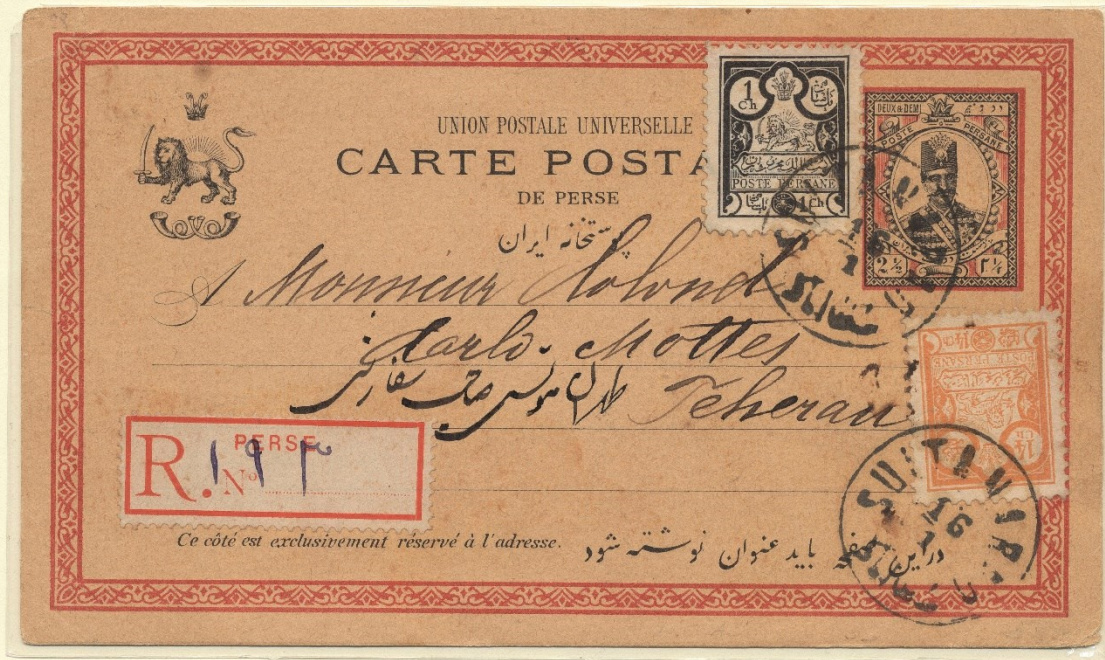 UNION POSTALE UNIVERSELLE
CARTE POSTA
DE PERSE
پستخانه ایران
1 Ch
POSTE PERSANE
1 Ch
DEUX & DEMI
POSTE PERSANE
2½ ۲½
A Monsieur Colonel
Carlo Mottes
Teheran
POSTE PERSANE
14 Ch
PERSE
R. No ۱۹۳
SULTAN
16
1
Ce côté est exclusivement réservé à l'adresse.
در این صفحه باید عنوان نوشته شود